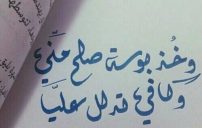 وخُذ بوسة صلح منّي
وكافي تدلل عليّا